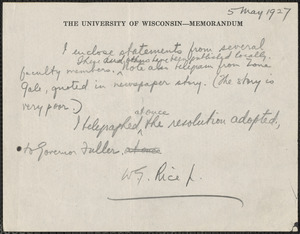 5 May 1927
THE UNIVERSITY OF WISCONSIN—MEMORANDUM
I enclose statements from several
They and others have been published locally.
faculty members; Note also telegram from Zona
Gale, quoted in newspaper story. (The story is
very poor.)
at once
I telegraphed, the resolution adopted,
to Governor Fuller,
W. G. Rice Jr.